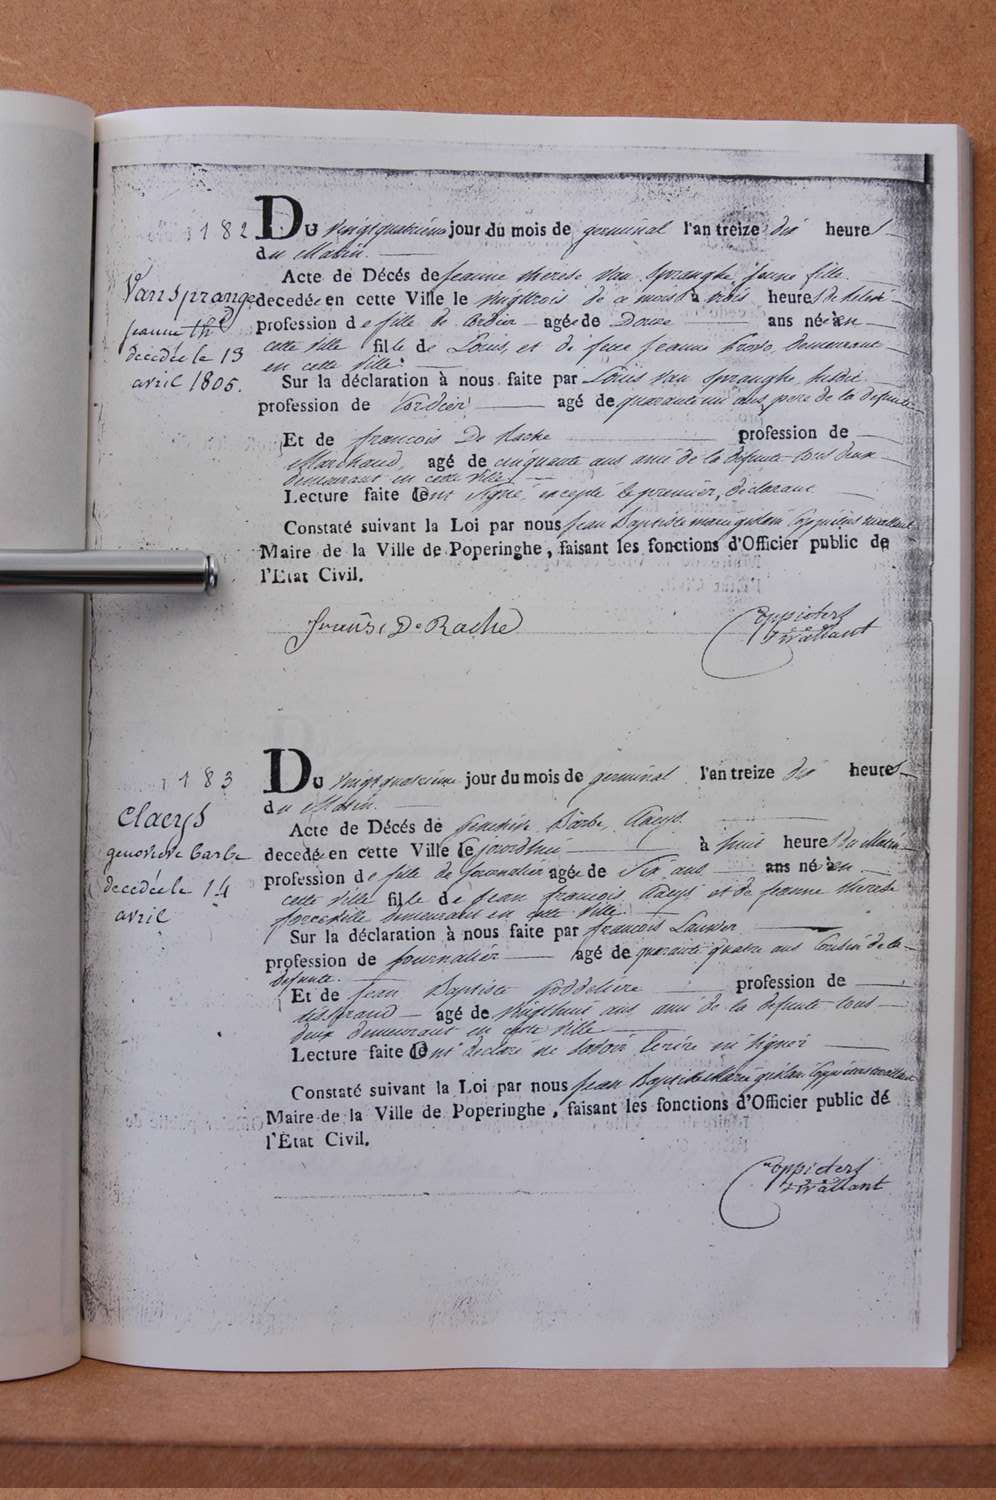 182
Du vingtquatrieme jour du mois de germinal l'an treize dix heures
du Matin.
Vansprange
jeanne th
decedée le 13
avril 1805.
Acte de Décés de Jeanne therese Van Spranghe jeune fille
decedée en cette Ville le vingttrois de ce mois à trois heures de
profession de fille de Cordier agée de Douze ans né en
cette ville fille de Louis, et de feue Jeanne demeurant
en cette ville
Sur la déclaration à nous faite par Louis Van Spranghe
profession de Cordier agé de quarante un ans pere de la defunte
Et de francois De Rache profession de
Marchand, agé de cinquante ans ami de la defunte tous deux
demeurant en cette ville
Lecture faite ont signé, excepté le premier, declarant
Constaté suivant la Loi par nous Jean Baptiste marie gislain Coppieters wallant
Maire de la Ville de Poperinghe, faisant les fonctions d'Officier public de
l'Etat Civil.
De Rache
Coppieters
wallant
183
Du vingtquatrieme jour du mois de germinal l'an treize dix heures
du Matin.
Claeys
genovieve barbe
decedée le 14
avril
Acte de Décés de Barbe Claeys
decedée en cette Ville le jourdhui à huit heures du Matin
profession de fille de Journalier agée de Six ans ans né en
cette ville fille de Jean francois Claeys et de Jeanne therese
demeurant en cette ville
Sur la déclaration à nous faite par francois
profession de Journalier agé de quarante quatre ans Cousin de la
defunte.
Et de Jean Baptiste profession de
agé de vingthuit ans ami de la defunte tous
deux demeurant en cette ville
Lecture faite ont declaré ne savoir Ecrire ni signer
Constaté suivant la Loi par nous Jean Baptiste Marie gislain Coppieters wallant
Maire de la Ville de Poperinghe, faisant les fonctions d'Officier public dé
l'Etat Civil.
Coppieters
wallant